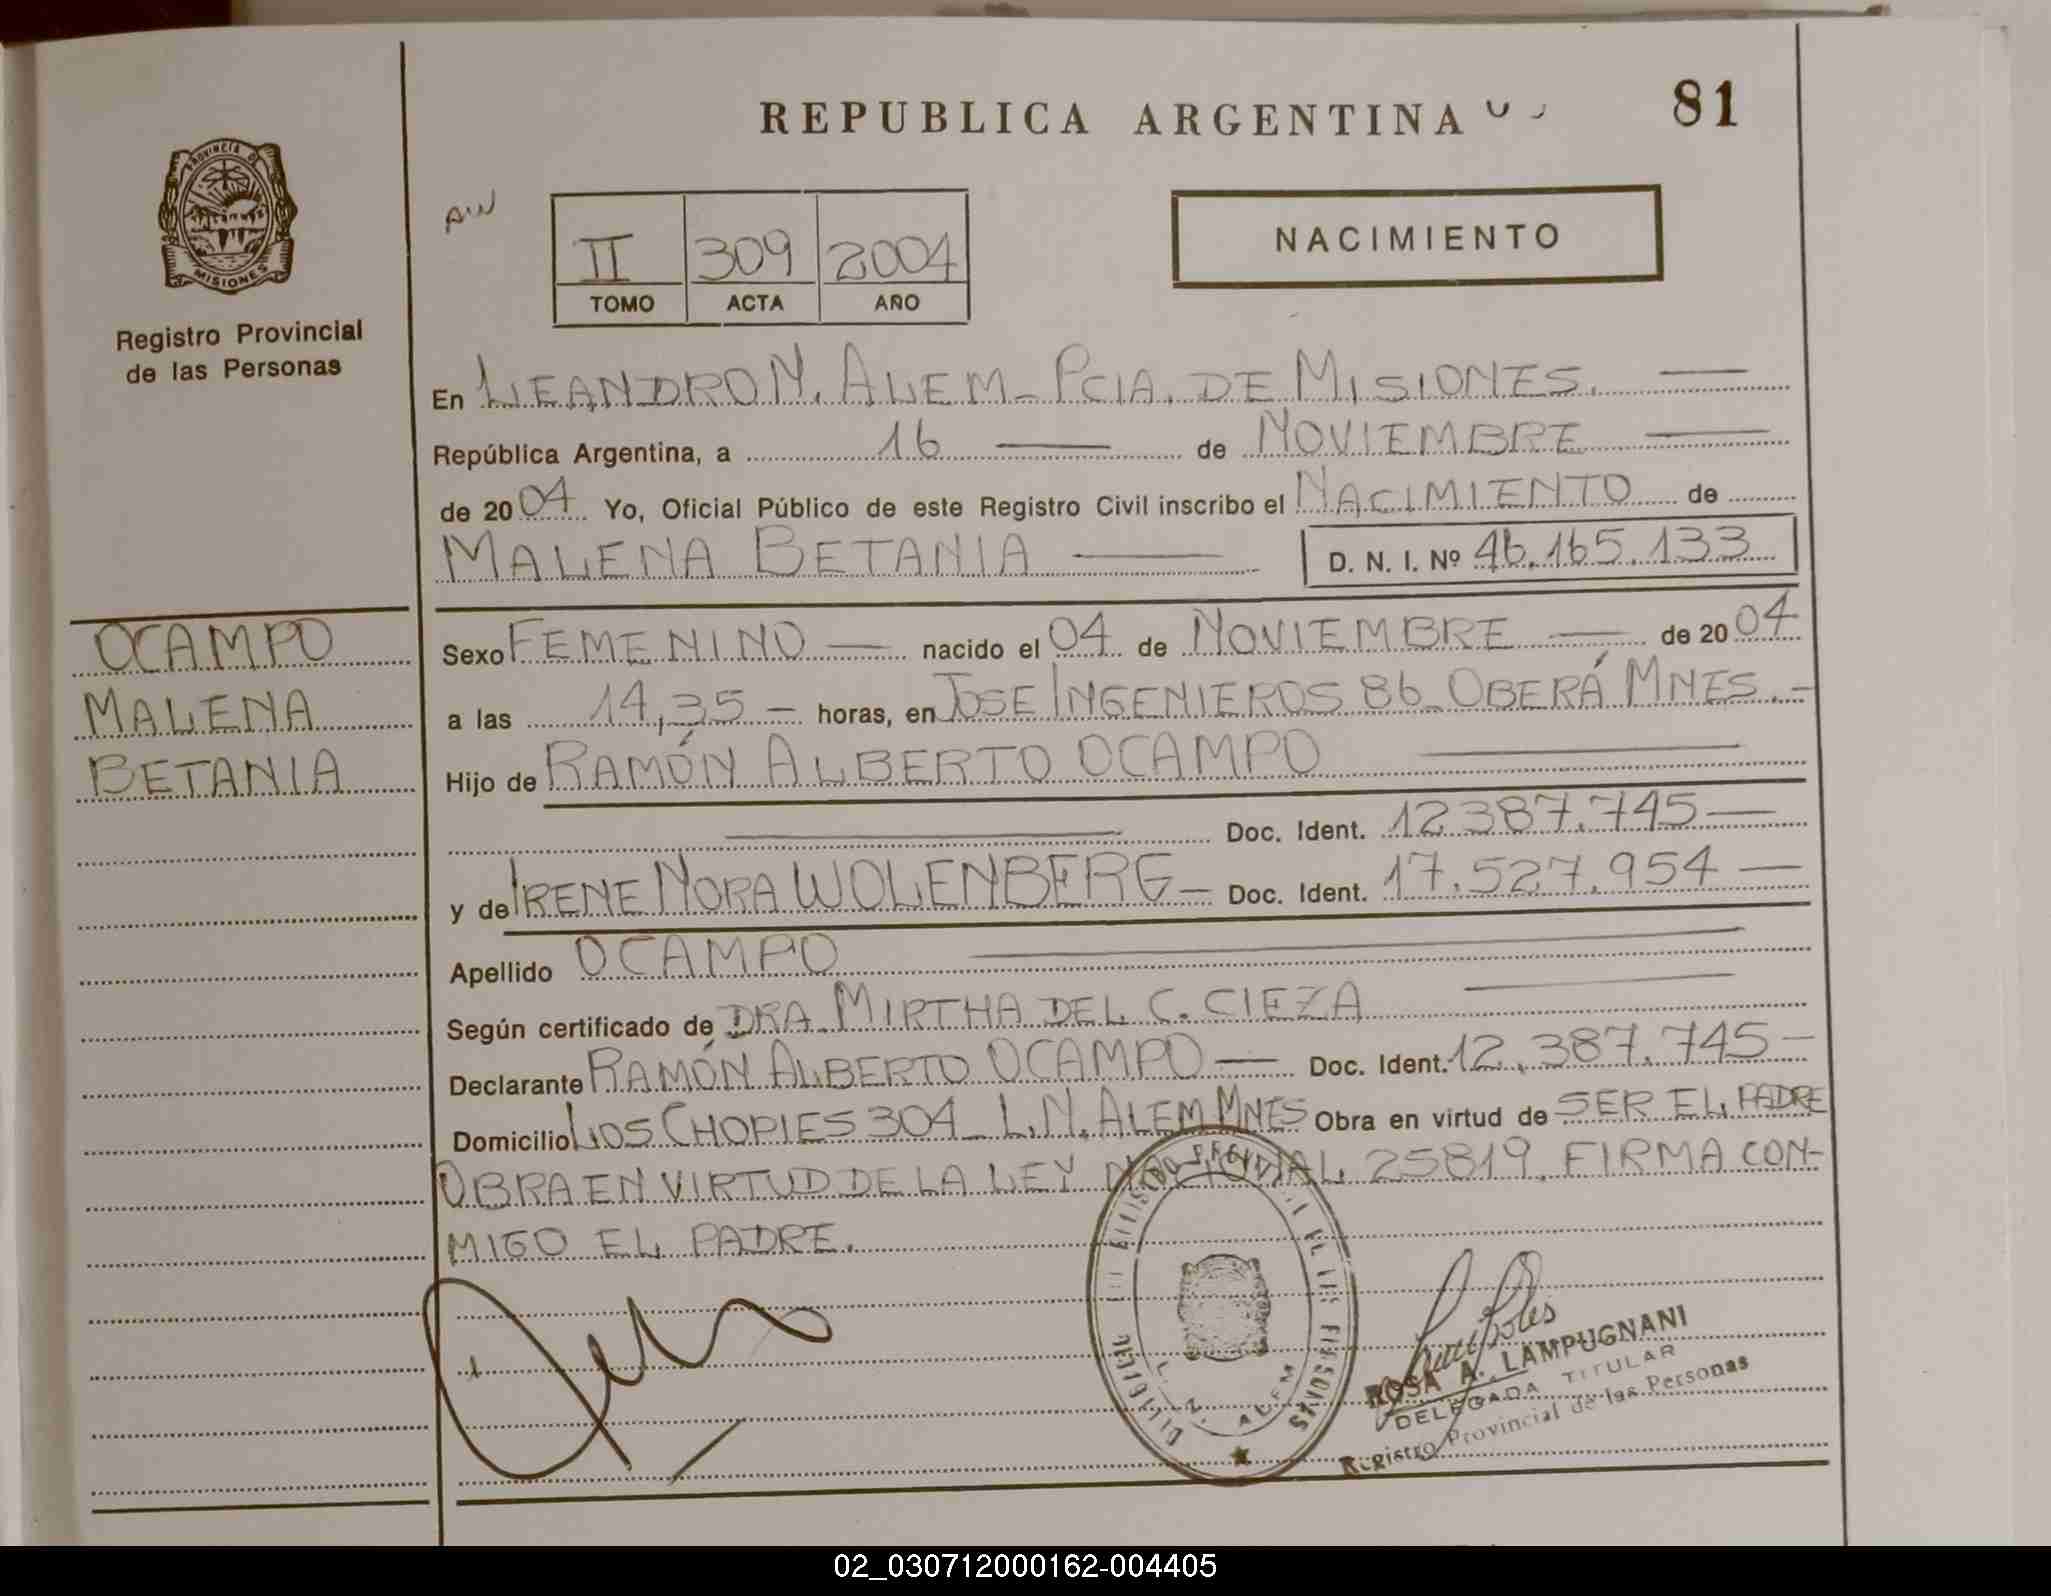 REPUBLICA ARGENTINA
81
PROVINCIA DE
MISIONES
Registro Provincial
de las Personas
II 309 2004
TOMO ACTA AÑO
NACIMIENTO
En LEANDRO N. ALEM - PCIA. DE MISIONES.
República Argentina, a 16 de NOVIEMBRE
de 2004 Yo, Oficial Público de este Registro Civil inscribo el NACIMIENTO de
MALENA BETANIA D. N. I. Nº 46.165.133
OCAMPO
MALENA
BETANIA
Sexo FEMENINO nacido el 04 de NOVIEMBRE de 2004
a las 14,35 - horas, en JOSE INGENIEROS 86 - OBERÁ MNES. -
Hijo de RAMÓN ALBERTO OCAMPO
Doc. Ident. 12.387.745 -
y de IRENE NORA WOLENBERG - Doc. Ident. 17.527.954 -
Apellido OCAMPO
Según certificado de DRA. MIRTHA DEL C. CIEZA
Declarante RAMÓN ALBERTO OCAMPO - Doc. Ident. 12.387.745 -
Domicilio LOS CHOPIES 304 - L.N. ALEM MNES Obra en virtud de SER EL PADRE
OBRA EN VIRTUD DE LA LEY NACIONAL 25819. FIRMA CON-
MIGO EL PADRE.
L. N. ALEM
ROSA A. LAMPUGNANI
DELEGADA TITULAR
Registro Provincial de las Personas
02_030712000162-004405